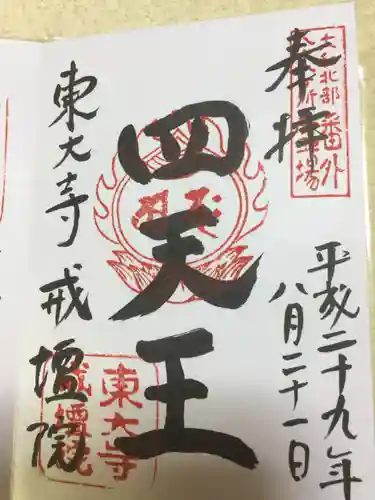 奉拝
平成二十九年
八月二十一日
四天王
東大寺 戒壇院
東大寺
戒壇院
北部
番外